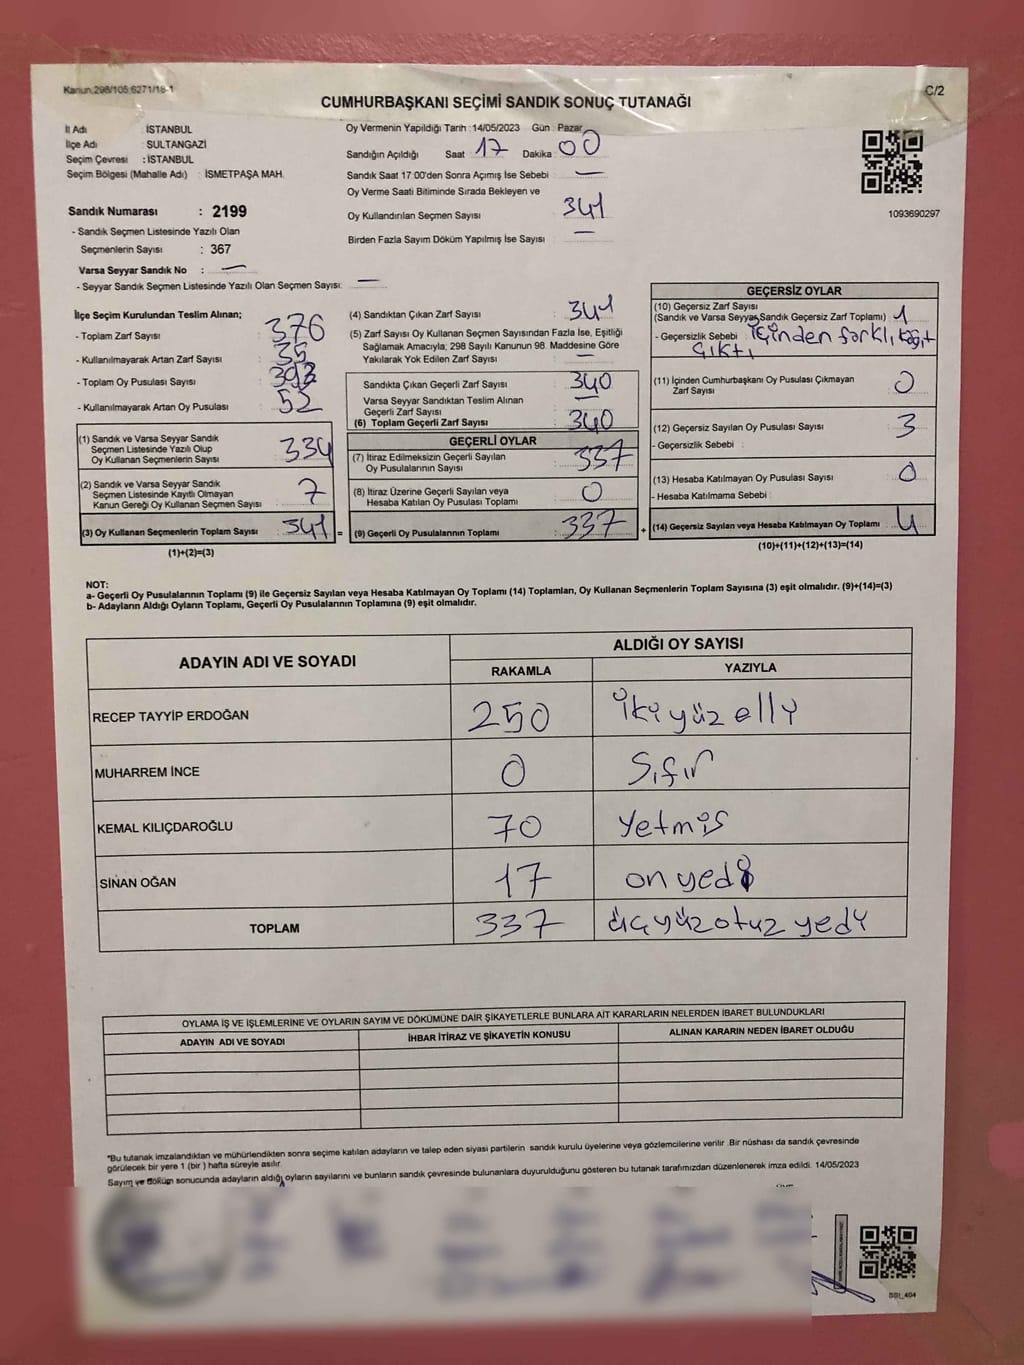 Kanun:298/105;6271/18-1
C/2
CUMHURBAŞKANI SEÇİMİ SANDIK SONUÇ TUTANAĞI
İl Adı : İSTANBUL
İlçe Adı : SULTANGAZİ
Seçim Çevresi : İSTANBUL
Seçim Bölgesi (Mahalle Adı) : İSMETPAŞA MAH.
Sandık Numarası : 2199
- Sandık Seçmen Listesinde Yazılı Olan
Seçmenlerin Sayısı : 367
Varsa Seyyar Sandık No : —
- Seyyar Sandık Seçmen Listesinde Yazılı Olan Seçmen Sayısı: —
Oy Vermenin Yapıldığı Tarih : 14/05/2023 Gün : Pazar
Sandığın Açıldığı Saat 17 Dakika : 00
Sandık Saat 17:00'den Sonra Açımış İse Sebebi : —
Oy Verme Saati Bitiminde Sırada Bekleyen ve
Oy Kullandırılan Seçmen Sayısı : 341
Birden Fazla Sayım Döküm Yapılmış İse Sayısı : —
1093690297
İlçe Seçim Kurulundan Teslim Alınan;
- Toplam Zarf Sayısı : 376
- Kullanılmayarak Artan Zarf Sayısı : 35
- Toplam Oy Pusulası Sayısı : 393
- Kullanılmayarak Artan Oy Pusulası : 52
(1) Sandık ve Varsa Seyyar Sandık
Seçmen Listesinde Yazılı Olup
Oy Kullanan Seçmenlerin Sayısı : 334
(2) Sandık ve Varsa Seyyar Sandık
Seçmen Listesinde Kayıtlı Olmayan
Kanun Gereği Oy Kullanan Seçmen Sayısı : 7
(3) Oy Kullanan Seçmenlerin Toplam Sayısı : 341 =
(1)+(2)=(3)
(4) Sandıktan Çıkan Zarf Sayısı : 341
(5) Zarf Sayısı Oy Kullanan Seçmen Sayısından Fazla İse, Eşitliği
Sağlamak Amacıyla; 298 Sayılı Kanunun 98. Maddesine Göre
Yakılarak Yok Edilen Zarf Sayısı : —
Sandıkta Çıkan Geçerli Zarf Sayısı : 340
Varsa Seyyar Sandıktan Teslim Alınan
Geçerli Zarf Sayısı : —
(6) Toplam Geçerli Zarf Sayısı : 340
GEÇERLİ OYLAR
(7) İtiraz Edilmeksizin Geçerli Sayılan
Oy Pusulalarının Sayısı : 337
(8) İtiraz Üzerine Geçerli Sayılan veya
Hesaba Katılan Oy Pusulası Toplamı : 0
(9) Geçerli Oy Pusulalarının Toplamı : 337 +
GEÇERSİZ OYLAR
(10) Geçersiz Zarf Sayısı
(Sandık ve Varsa Seyyar Sandık Geçersiz Zarf Toplamı) : 1
- Geçersizlik Sebebi : içinden farklı kağıt
çıktı
(11) İçinden Cumhurbaşkanı Oy Pusulası Çıkmayan
Zarf Sayısı : 0
(12) Geçersiz Sayılan Oy Pusulası Sayısı : 3
- Geçersizlik Sebebi :
(13) Hesaba Katılmayan Oy Pusulası Sayısı : 0
- Hesaba Katılmama Sebebi :
(14) Geçersiz Sayılan veya Hesaba Katılmayan Oy Toplamı : 4
(10)+(11)+(12)+(13)=(14)
NOT:
a- Geçerli Oy Pusulalarının Toplamı (9) ile Geçersiz Sayılan veya Hesaba Katılmayan Oy Toplamı (14) Toplamları, Oy Kullanan Seçmenlerin Toplam Sayısına (3) eşit olmalıdır. (9)+(14)=(3)
b- Adayların Aldığı Oyların Toplamı, Geçerli Oy Pusulalarının Toplamına (9) eşit olmalıdır.
ADAYIN ADI VE SOYADI ALDIĞI OY SAYISI
RAKAMLA YAZIYLA
RECEP TAYYİP ERDOĞAN 250 iki yüz elli
MUHARREM İNCE 0 Sıfır
KEMAL KILIÇDAROĞLU 70 Yetmiş
SİNAN OĞAN 17 on yedi
TOPLAM 337 üç yüz otuz yedi
OYLAMA İŞ VE İŞLEMLERİNE VE OYLARIN SAYIM VE DÖKÜMÜNE DAİR ŞİKAYETLERLE BUNLARA AİT KARARLARIN NELERDEN İBARET BULUNDUKLARI
ADAYIN ADI VE SOYADI İHBAR İTİRAZ VE ŞİKAYETİN KONUSU ALINAN KARARIN NEDEN İBARET OLDUĞU
*Bu tutanak imzalandıktan ve mühürlendikten sonra seçime katılan adayların ve talep eden siyasi partilerin sandık kurulu üyelerine veya gözlemcilerine verilir. Bir nüshası da sandık çevresinde
görülecek bir yere 1 (bir ) hafta süreyle asılır.
Sayım ve döküm sonucunda adayların aldığı oyların sayılarını ve bunların sandık çevresinde bulunanlara duyurulduğunu gösteren bu tutanak tarafımızdan düzenlenerek imza edildi. 14/05/2023